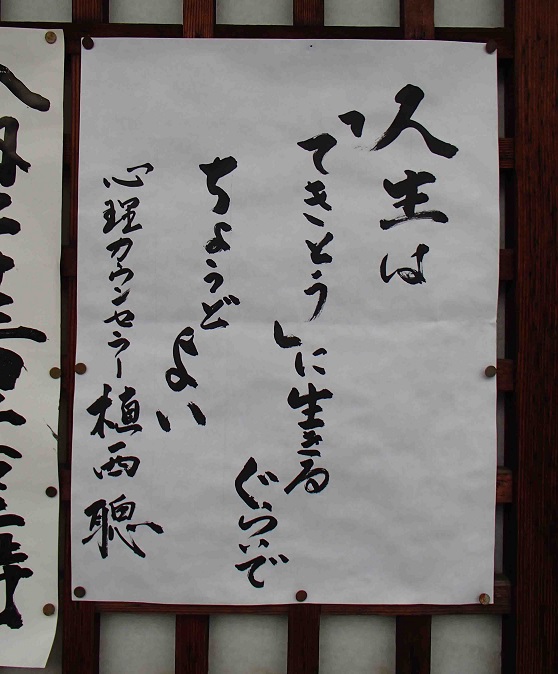 人生は
「てきとう」に生きる
ぐらいで
ちょうど
よい
心理カウンセラー 植西聰